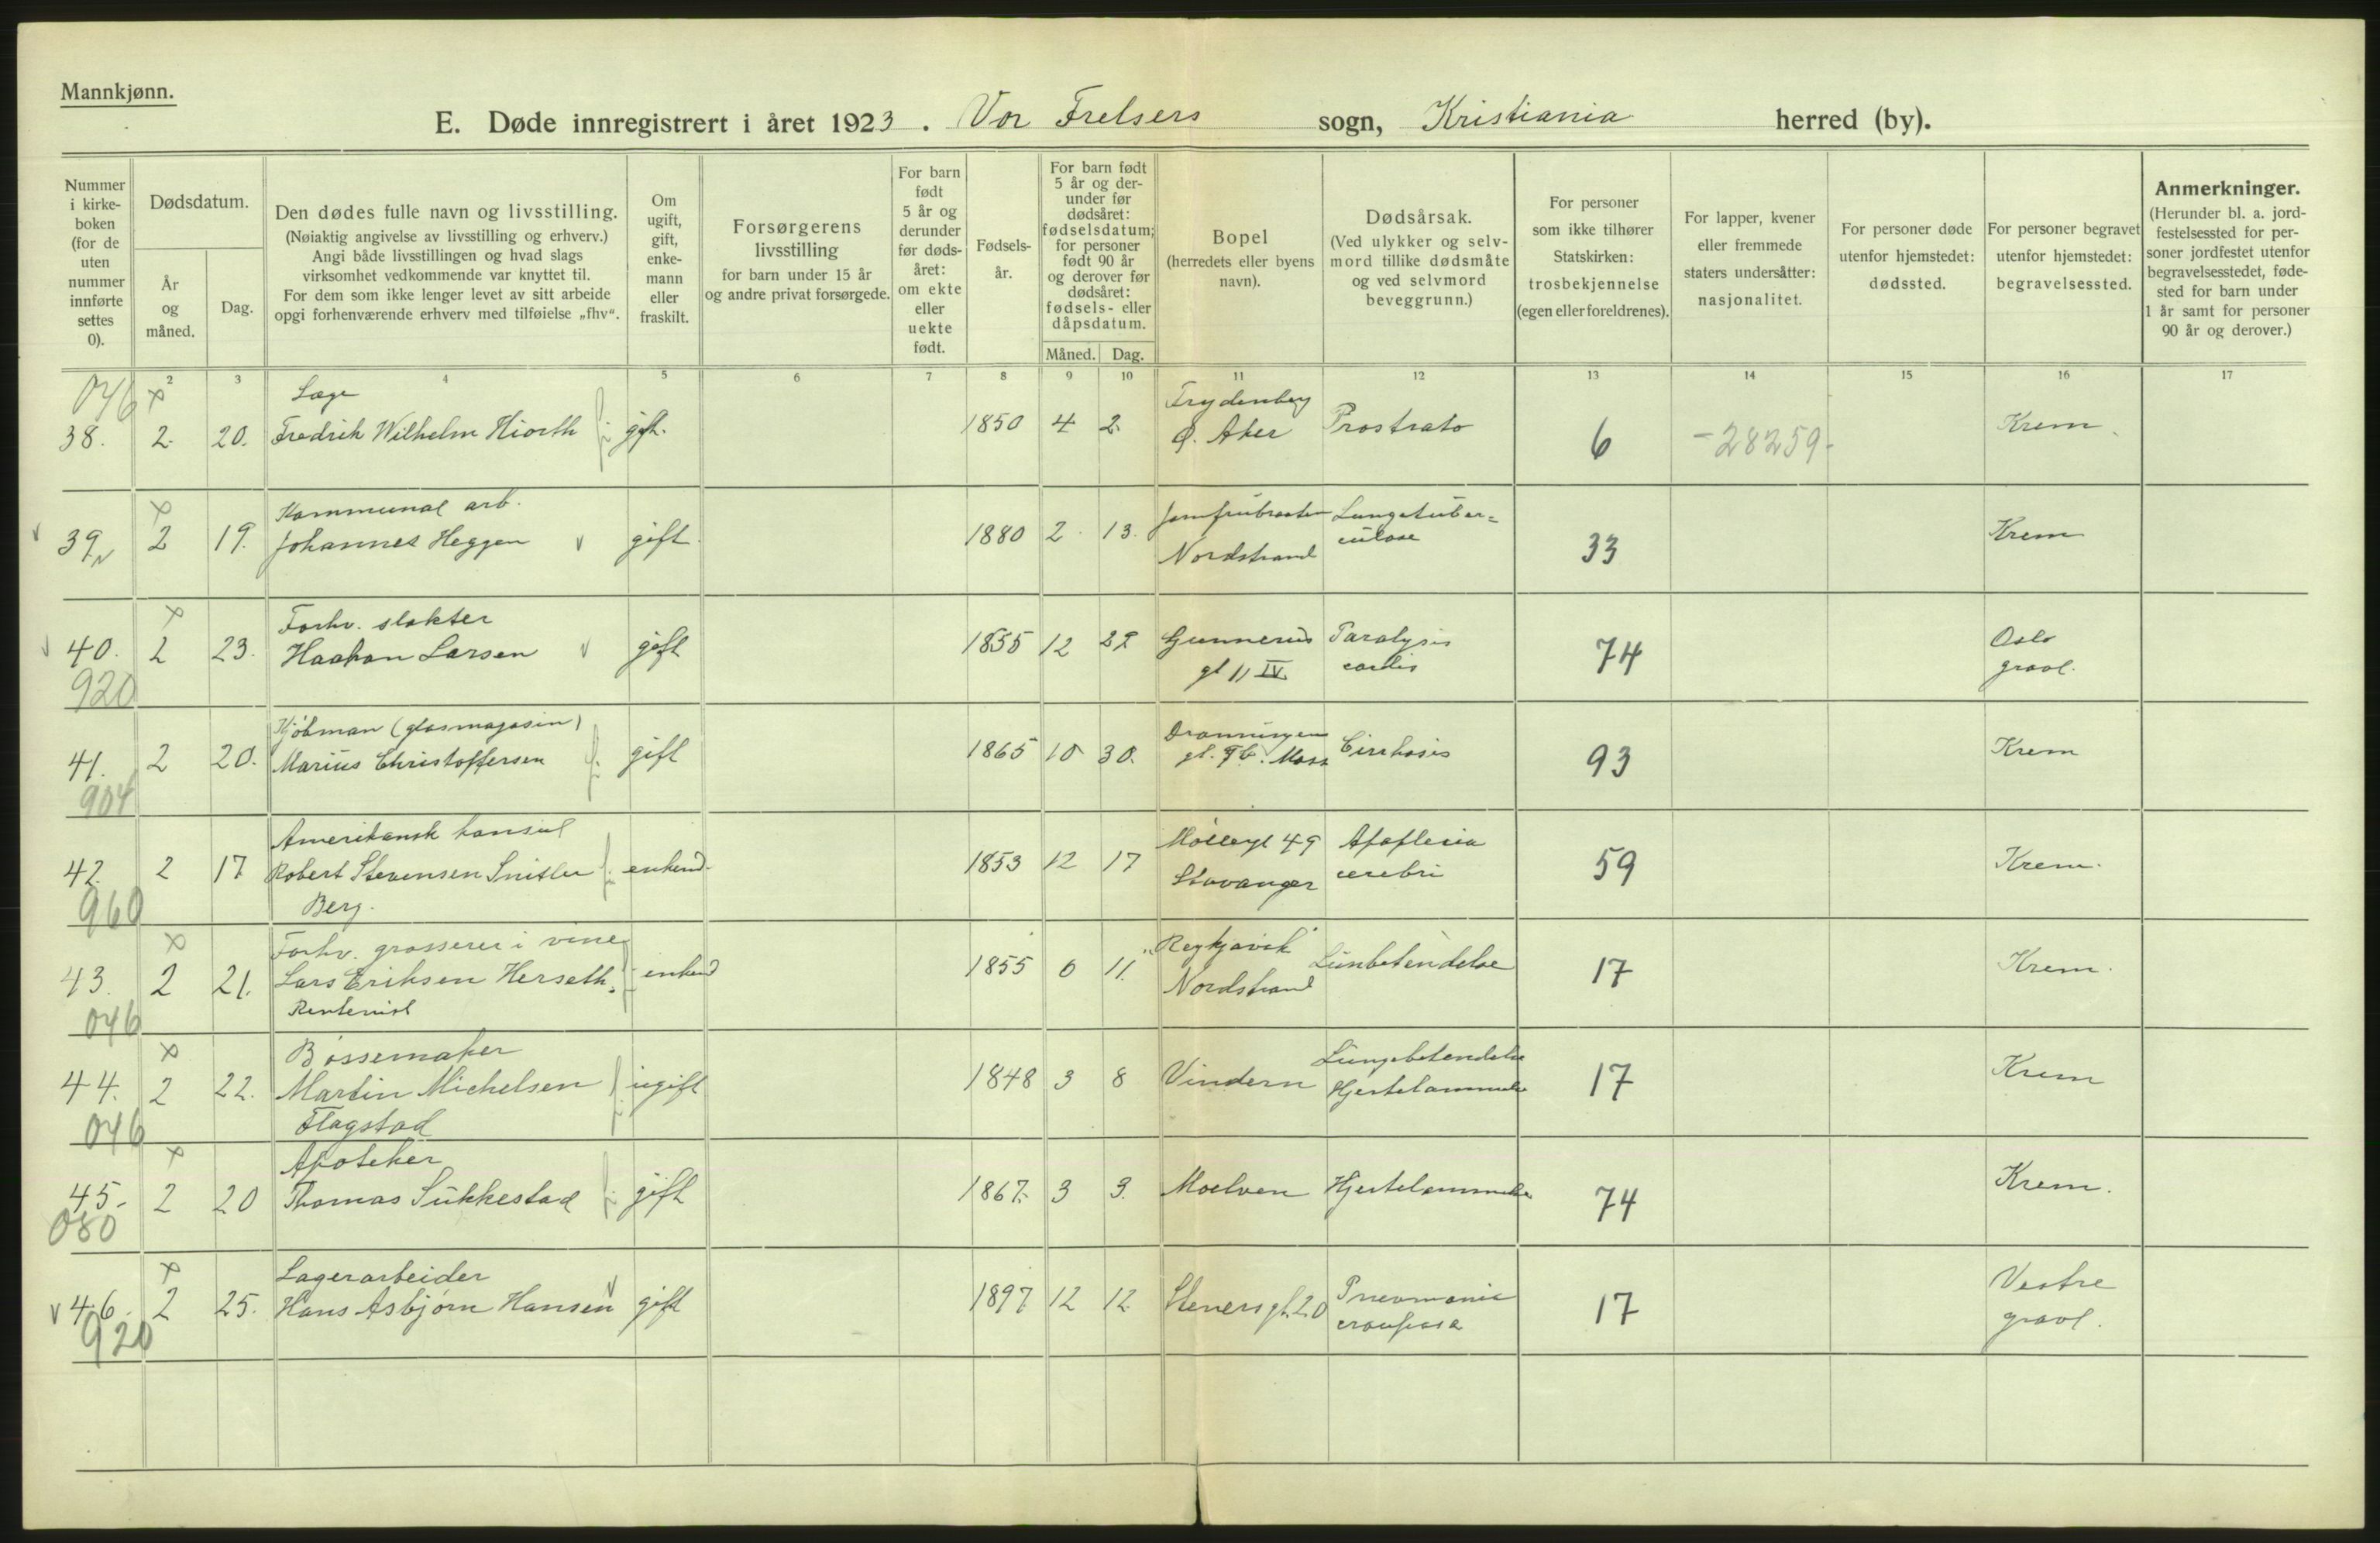 Mannkjønn.
E. Døde innregistrert i året 1923. Vor Frelsers sogn, Kristiania herred (by).
Nummer i kirke-boken (for de uten nummer innførte settes 0).
Dødsdatum.
År og måned.
Dag.
Den dødes fulle navn og livsstilling.
(Nøiaktig angivelse av livsstilling og erhverv.)
Angi både livsstillingen og hvad slags
virksomhet vedkommende var knyttet til.
For dem som ikke lenger levet av sitt arbeide
opgi forhenværende erhverv med tilføielse „fhv“.
Om ugift, gift, enke-mann eller fraskilt.
Forsørgerens livsstilling
for barn under 15 år
og andre privat forsørgede.
For barn født 5 år og derunder før døds-året: om ekte eller uekte født.
Fødsels-år.
For barn født 5 år og der-under før dødsåret: fødselsdatum; for personer født 90 år og derover før dødsåret: fødsels- eller dåpsdatum.
Måned. Dag.
Bopel
(herredets eller byens navn).
Dødsårsak.
(Ved ulykker og selv-mord tillike dødsmåte og ved selvmord beveggrunn.)
For personer som ikke tilhører Statskirken: trosbekjennelse (egen eller foreldrenes).
For lapper, kvener eller fremmede staters undersåtter: nasjonalitet.
For personer døde utenfor hjemstedet: dødssted.
For personer begravet utenfor hjemstedet: begravelsessted.
Anmerkninger.
(Herunder bl. a. jord-festelsessted for per-soner jordfestet utenfor begravelsesstedet, føde-sted for barn under 1 år samt for personer 90 år og derover.)
2 3 4 5 6 7 8 9 10 11 12 13 14 15 16 17
046 x Læge Frydenberg
38. 2. 20. Fredrik Wilhelm Hiorth gift. 1850 4 2. Ø. Aker Prostrato 6 -28259- Krem.
x Kommunal arb. Jomfrubraaten Lungetuber=
39 2 19. Johannes Heggen v gift. 1880 2 13. Nordstrand culose 33 Krem
x Forhv. slakter
40. 2 23. Haakon Larsen v gift 1855 12 Gunnerus Paralysis 74 Oslo
920 gt 11 IV cordis gravl.
Kjöbman (glasmagasin) Dronningens
41. 2 20. Marius Christoffersen gift 1865 10 30. gt. Moss Cirrhosis 93 Krem
904
Amerikansk konsul Möllergt 49 Apoplexia
42. 2 17 Robert Stevensen Snitler enkem. 1853 12 17 Stavanger cerebri 59 Krem.
960 Berg.
x Forhv. grosserer i vine "Reykjavik"
43. 2 21. Lars Eriksen Herseth. enkem 1855 6 11. Nordstrand Lunbetendelse 17 Krem.
046 Rentenist
x Bössemaker Lungebetendelse
44. 2 22. Martin Michelsen ugift 1848 3 8 Vindern Hjertelammelse 17 Krem
046 Flagstad
x Apoteker
45. 2 20 Thomas Sukkestad gift 1867. 3 3. Moelven Hjertelammelse 74 Krem.
080
x Lagerarbeider Pneumonia Vestre
v 46. 2 25. Hans Asbjörn Hansen v gift 1897 12 12 Stenersgt. 20 crouposa 17 gravl.
920